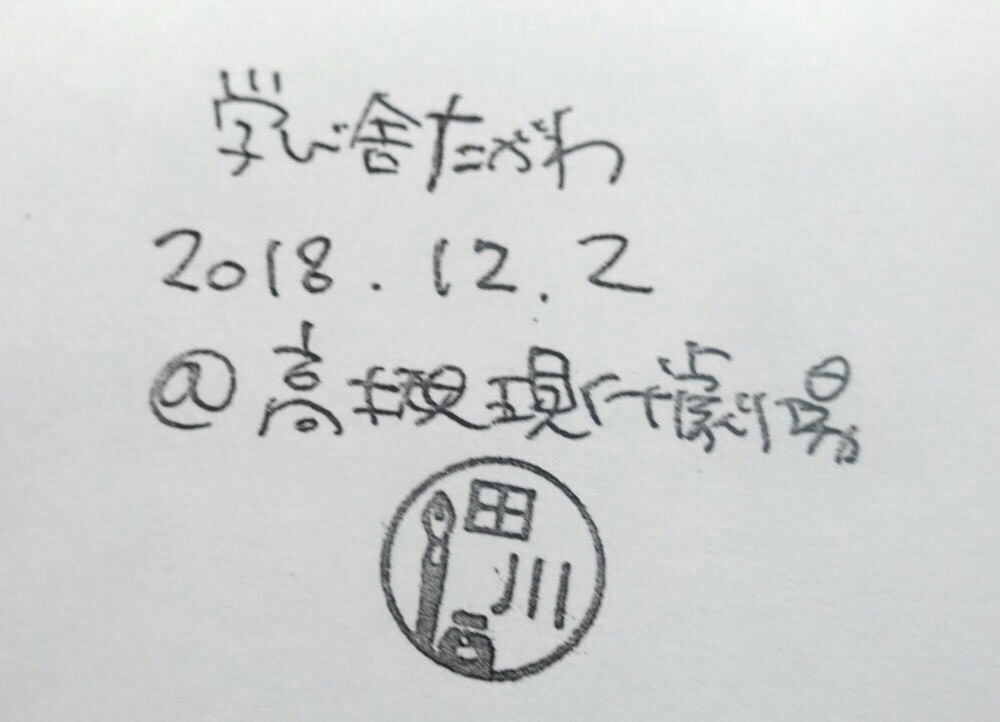 学び舎たがわ
2018.12.2
@高槻現代劇場
田川